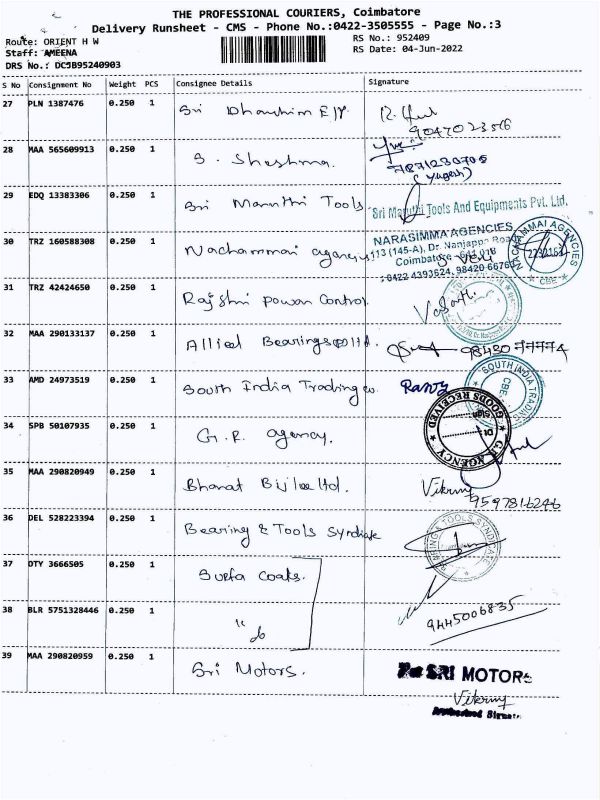 THE PROFESSIONAL COURIERS, Coimbatore
Delivery Runsheet - CMS - Phone No.:0422-3505555 - Page No.:3
Route: ORIENT H W
RS No.: 952409
Staff: AMEENA
RS Date: 04-Jun-2022
DRS No.: DCJB95240903
S No Consignment No Weight PCS Consignee Details Signature
27 PLN 1387476 0.250 1 Sri
28 MAA 565609913 0.250 1 S.
29 EDQ 13383306 0.250 1 Sri Maruthi Tools Sri Maruthi Tools And Equipments Pvt. Ltd.
NARASIMMA AGENCIES
113 (145-A), Dr. Nanjappa Road
Coimbatore
30 TRZ 160588308 0.250 1 Nachammai agency NACHAMMAI AGENCIES CBE
31 TRZ 42424650 0.250 1 Rajshri power Control
32 MAA 290133137 0.250 1 Allied Bearings 98430 77774
33 AMD 24973519 0.250 1 South India Trading co SOUTH INDIA TRADING CBE
34 SPB 50107935 0.250 1 G.R. agency. GOODS RECEIVED AGENCY
35 MAA 290820949 0.250 1 Bharat Bijlee ltd. Vikram
9597816246
36 DEL 528223394 0.250 1 Bearing & Tools Syndicate BEARING & TOOLS SYNDICATE
37 OTY 3666505 0.250 1 Surfa Coats.
38 BLR 5751328446 0.250 1 "
9445006835
39 MAA 290820959 0.250 1 Sri Motors. SRI MOTORS
Vikram